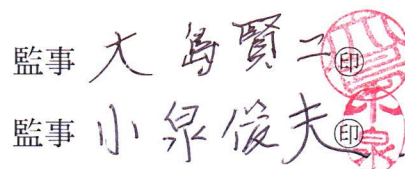 監事 大島賢二㊞
監事 小泉俊夫㊞
小泉